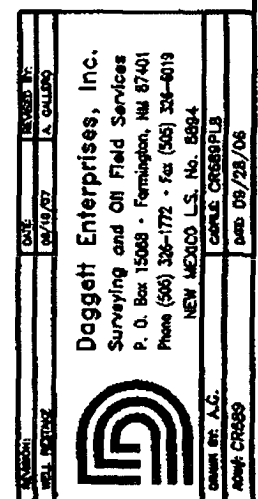 REVISION: DATE: REVISED BY:
WELL FOOTAGE 08/10/07 A. GALLEGO
Daggett Enterprises, Inc.
Surveying and Oil Field Services
P. O. Box 15068 · Farmington, NM 87401
Phone (505) 326-1772 · Fax (505) 326-6019
NEW MEXICO L.S. No. 8894
DRAWN BY: A.G. CADFILE: CR689PL8
ROW#: CR689 DATE: 09/28/06